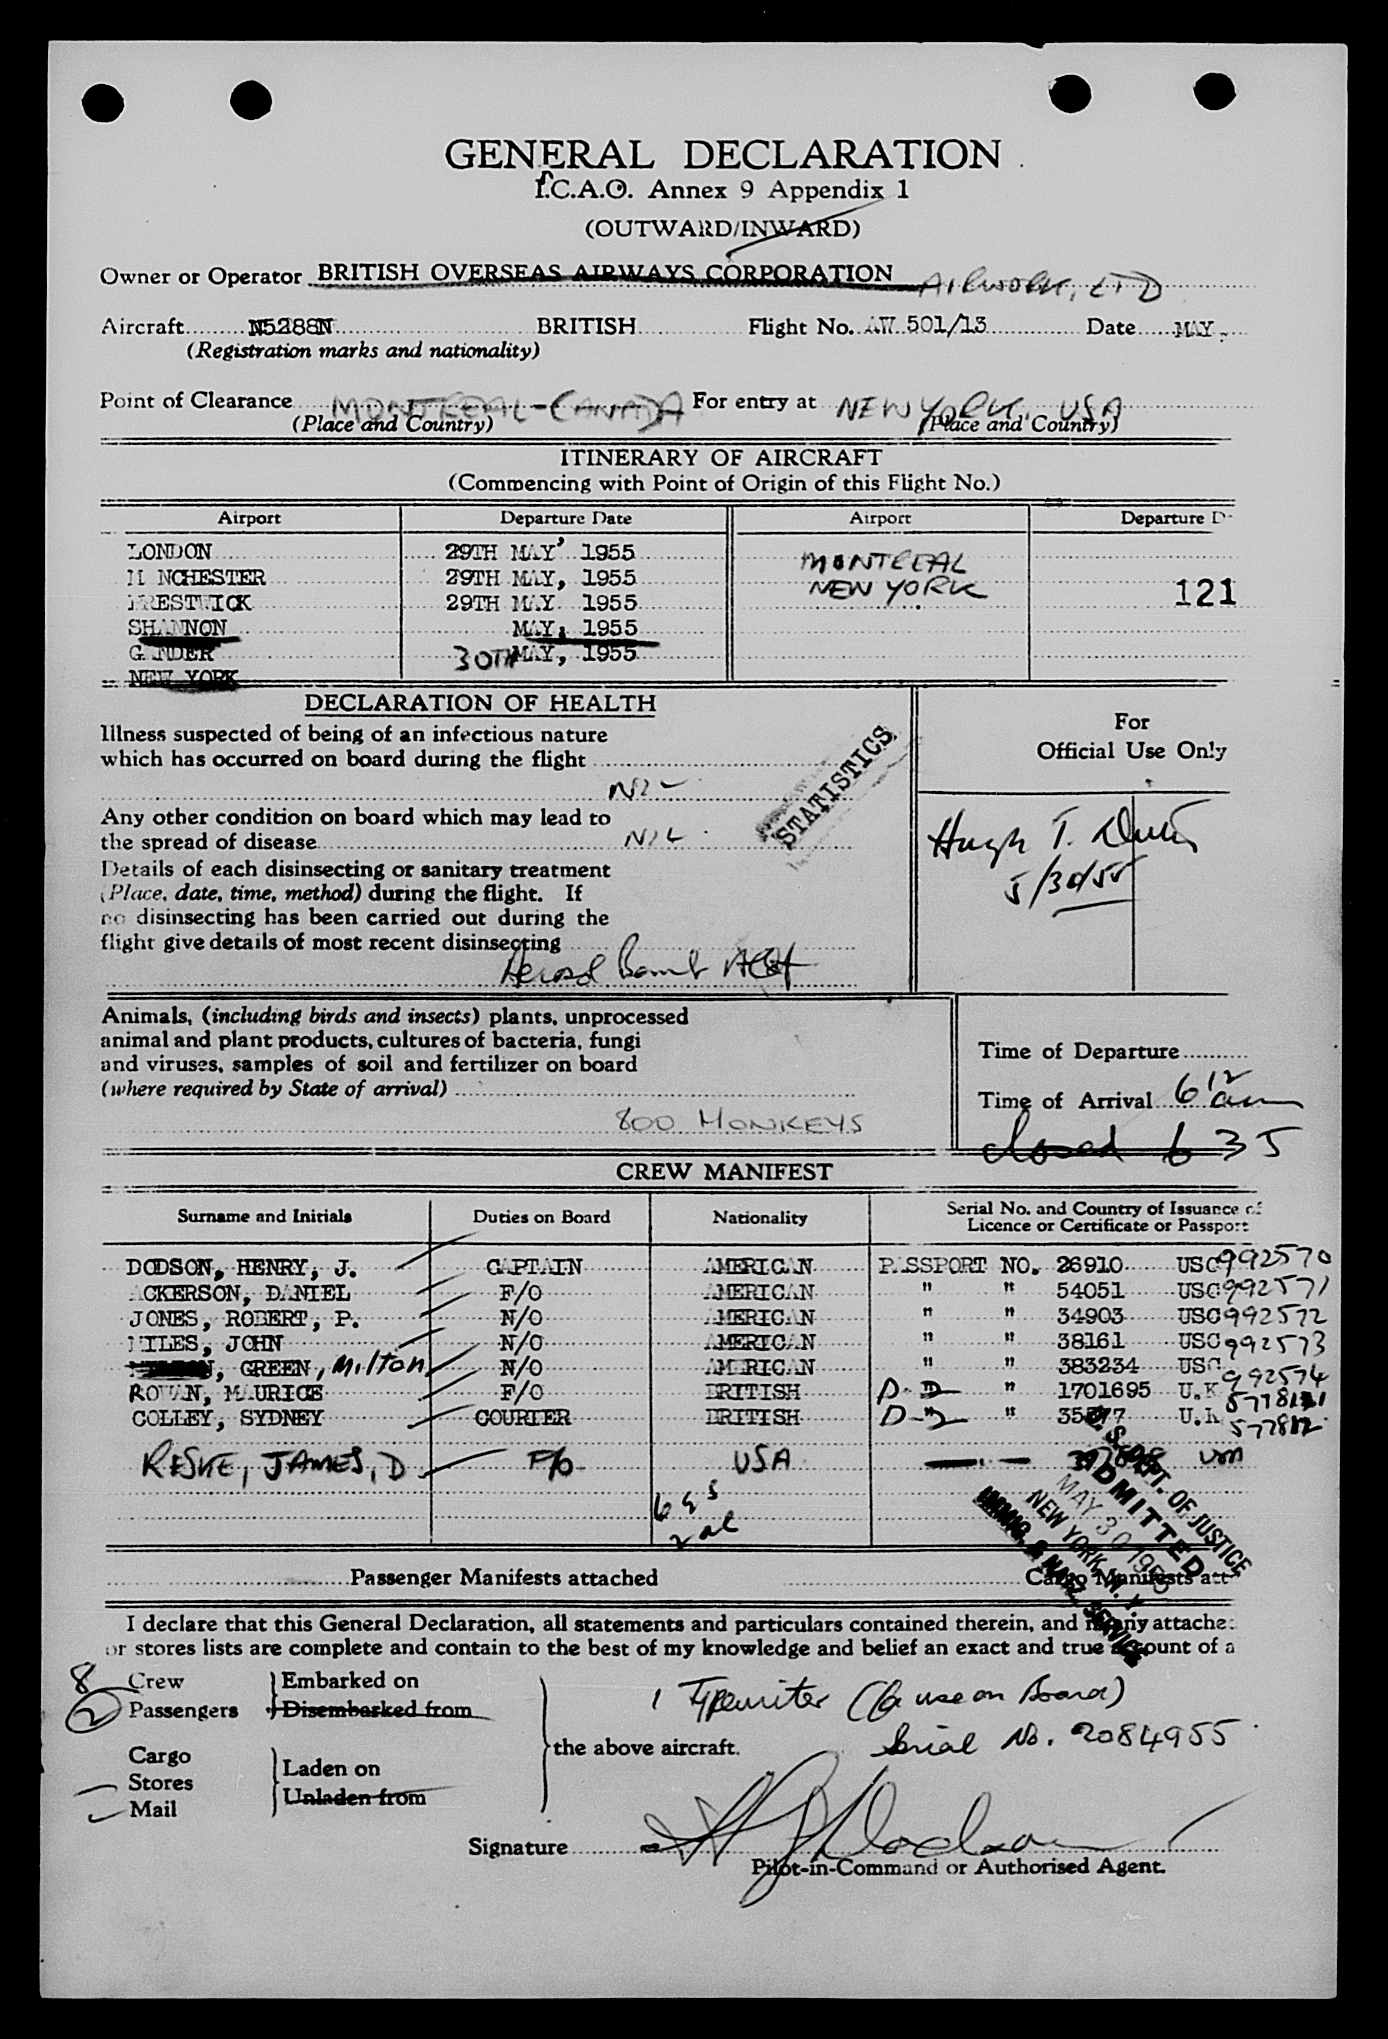 GENERAL DECLARATION
I.C.A.O. Annex 9 Appendix 1
(OUTWARD/INWARD)
Owner or Operator BRITISH OVERSEAS AIRWAYS CORPORATION AIRWORK, LTD
Aircraft N5288N BRITISH Flight No. AW 501/13 Date MAY,
(Registration marks and nationality)
Point of Clearance MONTREAL - CANADA For entry at NEW YORK, USA
(Place and Country) (Place and Country)
ITINERARY OF AIRCRAFT
(Commencing with Point of Origin of this Flight No.)
Airport Departure Date Airport Departure D
LONDON 29TH MAY, 1955 MONTREAL
M NCHESTER 29TH MAY, 1955 NEW YORK 121
PRESTWICK 29TH MAY 1955
SHANNON MAY, 1955
GANDER 30TH MAY, 1955
NEW YORK
DECLARATION OF HEALTH
For
Official Use Only
Illness suspected of being of an infectious nature
which has occurred on board during the flight
NIL
STATISTICS
Any other condition on board which may lead to
the spread of disease NIL
Hugh T.
5/30/55
Details of each disinsecting or sanitary treatment
(Place, date, time, method) during the flight. If
no disinsecting has been carried out during the
flight give details of most recent disinsecting
Aerosol Bomb
Animals, (including birds and insects) plants, unprocessed
animal and plant products, cultures of bacteria, fungi
and viruses, samples of soil and fertilizer on board
(where required by State of arrival)
800 MONKEYS
Time of Departure
Time of Arrival 6 12 am
closed 6 35
CREW MANIFEST
Surname and Initials Duties on Board Nationality Serial No. and Country of Issuance of
Licence or Certificate or Passport
DODSON, HENRY, J. CAPTAIN AMERICAN PASSPORT NO. 26910 USG 992570
ACKERSON, DANIEL F/O AMERICAN " " 54051 USG 992571
JONES, ROBERT, P. N/O AMERICAN " " 34903 USG 992572
MILES, JOHN N/O AMERICAN " " 38161 USG 992573
GREEN, Milton N/O AMERICAN " " 383234 USG 992574
ROWAN, MAURICE F/O BRITISH " 1701695 U.K
COLLEY, SYDNEY COURIER BRITISH " U.K 577812
RESKE, JAMES, D F/O USA
6 G S
2 al
U.S. DEPT. OF JUSTICE
ADMITTED
MAY 30 1955
NEW YORK, N.Y.
IMMIG. & NATZ. SERVICE
Passenger Manifests attached Cargo Manifests att
I declare that this General Declaration, all statements and particulars contained therein, and in any attache
or stores lists are complete and contain to the best of my knowledge and belief an exact and true account of a
8 Crew Embarked on
2 Passengers Disembarked from
1 Typewriter (for use on Board)
Serial No. 2084955
the above aircraft.
Cargo
Stores Laden on
Mail Unladen from
Signature H J Dodson
Pilot-in-Command or Authorised Agent.